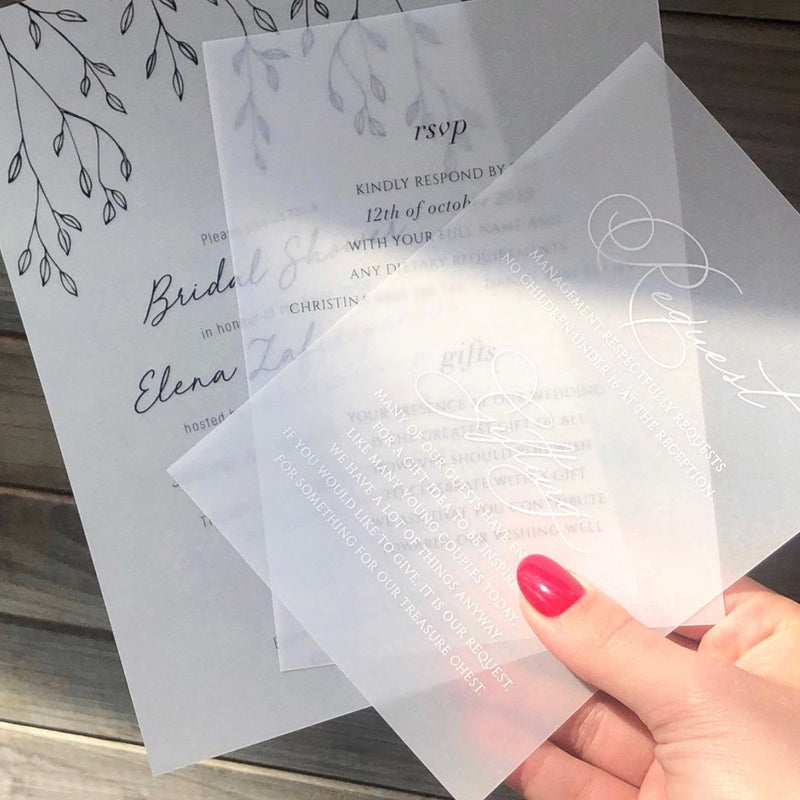 Please
Bridal Shower
in honour of
Elena
hosted
rsvp
KINDLY RESPOND BY
12th of october
WITH YOUR FULL NAME AND
ANY DIETARY REQUIREMENTS
CHRISTINA
gifts
YOUR PRESENCE AT OUR WEDDING
IS THE GREATEST GIFT OF ALL
HOWEVER SHOULD YOU WISH
TO CELEBRATE WITH A GIFT
WE ASK THAT YOU CONTRIBUTE
TOWARDS OUR WISHING WELL
Request
MANAGEMENT RESPECTFULLY REQUESTS
NO CHILDREN UNDER 16 AT THE RECEPTION.
Gifting
MANY OF OUR GUESTS HAVE
FOR A GIFT IDEA TO BE
LIKE MANY YOUNG COUPLES TODAY,
WE HAVE A LOT OF THINGS ANYWAY.
IF YOU WOULD LIKE TO GIVE, IT IS OUR REQUEST,
FOR SOMETHING FOR OUR TREASURE CHEST.